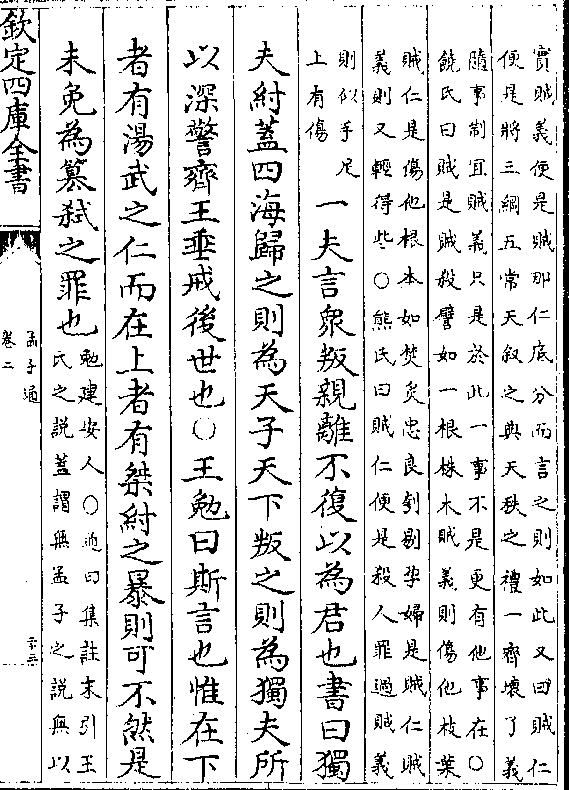 實賊義便是賊那仁底分而言之則如此又曰賊仁
便是將三綱五常天叙之典天秩之禮一齊壞了義
隨事制宜賊義只是於此一事不是更有他事在○
饒氏曰賊是賊殺譬如一根株木賊義則傷他枝葉
賊仁是傷他根本如焚炙忠良刳剔孕婦是賊仁賊
義則又輕得些○熊氏曰賊仁便是殺人罪過賊義
則似手足
上有傷
一夫言衆叛親離不復以為君也書曰獨
夫紂蓋四海歸之則為天子天下叛之則為獨夫所
以深警齊王垂戒後世也○王勉曰斯言也惟在下
者有湯武之仁而在上者有桀紂之暴則可不然是
未免為簒弑之罪也
勉建安人○通曰集註末引王
氏之說蓋謂無孟子之說無以
欽定四庫全書
孟子通
卷二